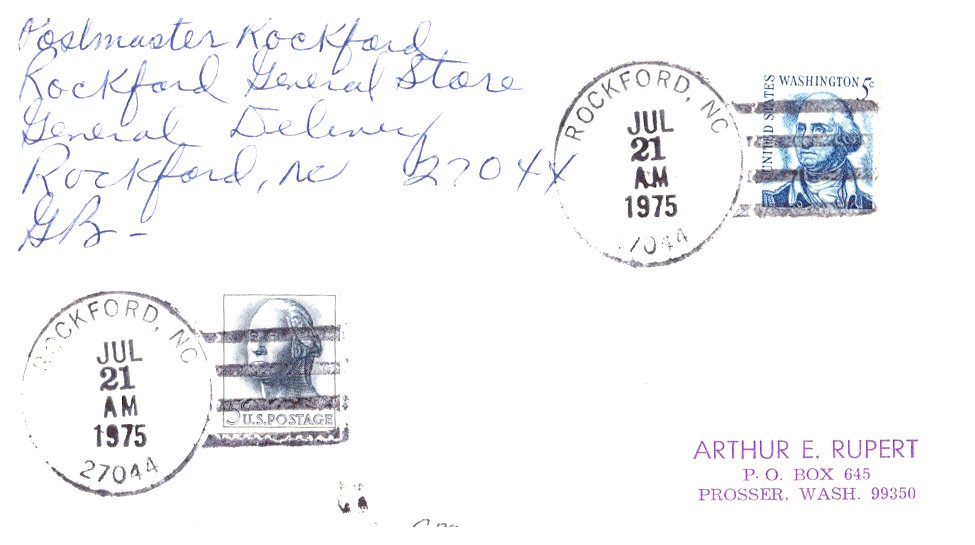 Postmaster Rockford
Rockford General Store
General Delivery
Rockford, NC 27044
GB -
ROCKFORD, NC
JUL
21
AM
1975
7044
UNITED STATES
WASHINGTON 5c
ROCKFORD, NC
JUL
21
AM
1975
27044
5c
U.S. POSTAGE
ARTHUR E. RUPERT
P. O. BOX 645
PROSSER, WASH. 99350